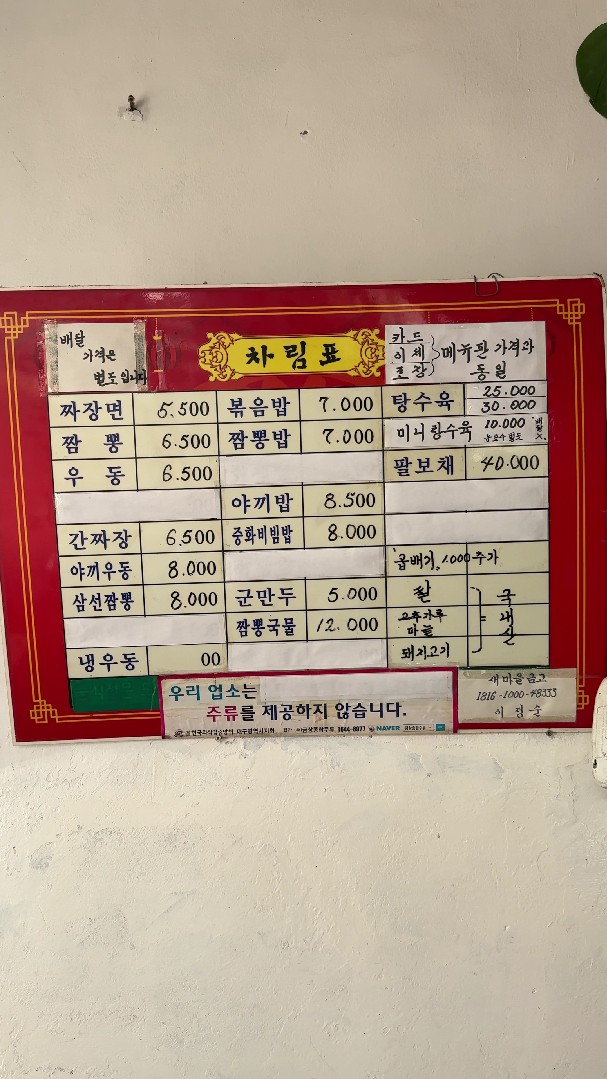 배달
가격은
별도입니다
차림표
카드
이체
포장
메뉴판 가격과
동일
짜장면 5.500
짬뽕 6.500
우동 6.500
간짜장 6.500
야끼우동 8.000
삼선짬뽕 8.000
냉우동 00
볶음밥 7.000
짬뽕밥 7.000
야끼밥 8.500
중화비빔밥 8.000
군만두 5.000
짬뽕국물 12.000
탕수육 25.000
30.000
미니탕수육 10.000
팔보채 40.000
곱배기, 1.000추가
쌀
고추가루
마늘
돼지고기
= 국내산
우리 업소는
주류를 제공하지 않습니다.
1644-6977 NAVER
새마을금고
1816-1000-48333
이정순